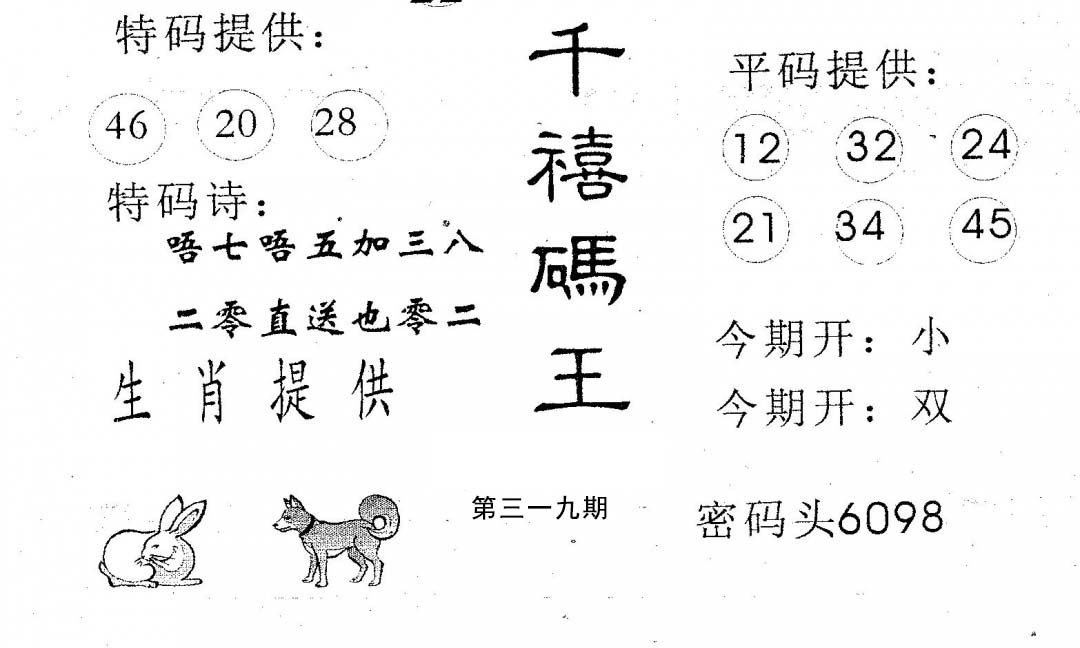 特码提供：
46 20 28
特码诗：
唔七唔五加三八
二零直送也零二
生肖提供
千禧碼王
第三一九期
平码提供：
12 32 24
21 34 45
今期开：小
今期开：双
密码头6098